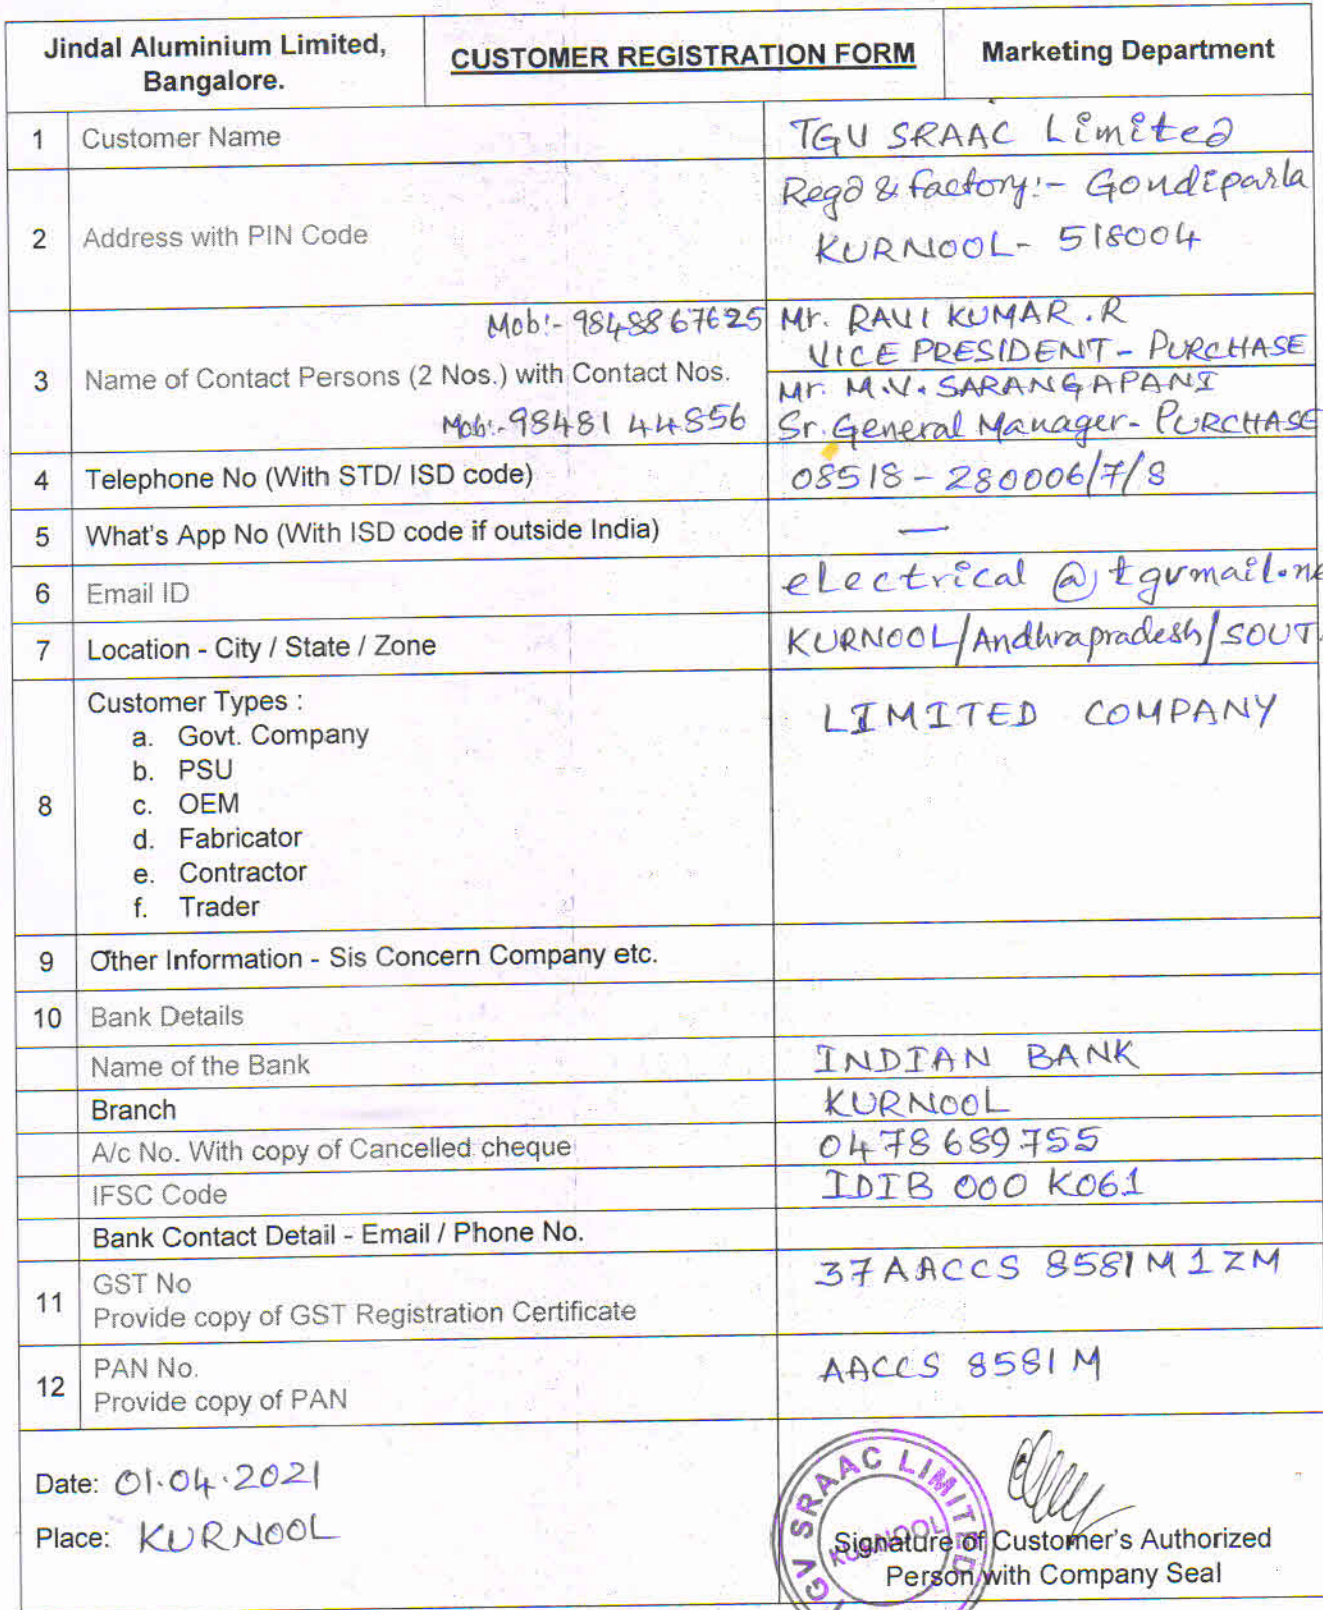 Jindal Aluminium Limited,
Bangalore.
CUSTOMER REGISTRATION FORM
Marketing Department
1 Customer Name TGV SRAAC Limited
2 Address with PIN Code Regd & factory:- Gondiparla
KURNOOL- 518004
Mob:- 9848867625 Mr. RAVI KUMAR.R
VICE PRESIDENT- PURCHASE
3 Name of Contact Persons (2 Nos.) with Contact Nos.
Mr. M.V. SARANGAPANI
Mob:-98481 44856 Sr. General Manager- PURCHASE
4 Telephone No (With STD/ ISD code) 08518-280006/7/8
5 What's App No (With ISD code if outside India) —
6 Email ID electrical @tgvmail.ne
7 Location - City / State / Zone KURNOOL/Andhrapradesh/SOUT
8 Customer Types : LIMITED COMPANY
a. Govt. Company
b. PSU
c. OEM
d. Fabricator
e. Contractor
f. Trader
9 Other Information - Sis Concern Company etc.
10 Bank Details
Name of the Bank INDIAN BANK
Branch KURNOOL
A/c No. With copy of Cancelled cheque 0478689755
IFSC Code IDIB 000 K061
Bank Contact Detail - Email / Phone No.
11 GST No 37AACCS 8581M1ZM
Provide copy of GST Registration Certificate
12 PAN No. AACCS 8581M
Provide copy of PAN
Date: 01.04.2021
Place: KURNOOL
TGV SRAAC LIMITED
KURNOOL
Signature of Customer's Authorized
Person with Company Seal